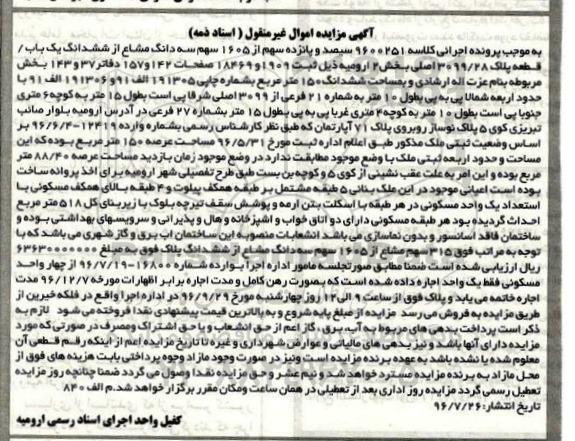 آگهی مزایده اموال غیرمنقول ( اسناد ذمه)
به موجب پرونده اجرائی کلاسه ۹۶۰۰۲۵۱ سیصد و پانزده سهم از ۱۶۰۵ سهم سه دانگ مشاع از ششدانگ یک باب/
قطعه پلاک ۳۰۹۹/۲۸ اصلی بخش ۲ ارومیه ذیل ثبت ۱۹۰۹ و ۱۸۴۶۹ صفحات ۱۴۲ و ۱۵۷ دفاتر ۳۷ و ۱۴۳ بخش
مربوطه بنام عزت اله ارشادی و بمساحت ششدانگ ۱۵۰ متر مربع بشماره چاپی ۱۹۱۳۰۵ الف ۹۱ و ۱۹۱۳۰۶ الف ۹۱ با
حدود اربعه شمالا پی به پی بطول ۱۰ متر به شماره ۲۱ فرعی از ۳۰۹۹ اصلی شرقا پی است بطول ۱۵ متر به کوچه ۶ متری
جنوبا پی است بطول ۱۰ متر به کوچه ۴ متری غربا پی به پی بطول ۱۵ متر بشماره ۲۷ فرعی در آدرس ارومیه بلوار صائب
تبریزی کوی ۵ پلاک نوساز روبروی پلاک ۷۱ آپارتمان که طبق نظر کارشناس رسمی بشماره وارده ۱۲۴۱۹-۹۶/۶/۴ بر
اساس وضعیت ثبتی ملک مذکور طبق اعلام اداره ثبت مورخ ۹۶/۵/۳۱ مساحت عرصه ۱۵۰ متر مربع بوده که این
مساحت و حدود اربعه ثبتی ملک با وضع موجود مطابقت ندارد در وضع موجود زمان بازدید مساحت عرصه ۸۸/۴۰ متر
مربع بوده و این امر به علت عقب نشینی از کوی ۵ و کوچه بن بست طبق طرح تفصیلی شهر ارومیه برای اخذ پروانه ساخت
بوده است اعیانی موجود در این ملک بنائی ۵ طبقه مشتمل بر طبقه همکف پیلوت و ۴ طبقه بالای همکف مسکونی با
استعداد یک واحد مسکونی در هر طبقه با اسکلت بتن ارمه و پوشش سقف تیرچه بلوک با زیربنای کل ۵۱۸ متر مربع
احداث گردیده بود هر طبقه مسکونی دارای دو اتاق خواب و اشپزخانه و هال و پذیرائی و سرویسهای بهداشتی بوده و
ساختمان فاقد آسانسور و بدون نماسازی می باشد انشعابات منصوبه این ساختمان اب برق و گاز شهری می باشد که با
توجه به مراتب فوق ۳۱۵ سهم مشاع از ۱۶۰۵ سهم سه دانگ مشاع از ششدانگ پلاک فوق به مبلغ
ریال ارزیابی شده است ضمنا مطابق صورتجلسه مامور اداره اجرا بوارده شماره ۱۶۸۰۰-۹۶/۷/۱۹ از چهار واحد
مسکونی فقط یک واحد اجاره داده شده است که بصورت رهن کامل و مدت اجاره برابر اظهارات مورخه ۹۶/۱۲/۷ مدت
اجاره خاتمه می یابد و پلاک فوق از ساعت ۹ الی ۱۲ روز چهارشنبه مورخ ۹۶/۹/۲۹ در اداره اجرا واقع در فلکه خیرین از
طریق مزایده به فروش می رسد مزایده از مبلغ پایه شروع و به بالاترین قیمت پیشنهادی نقدا فروخته می شود لازم به
ذکر است پرداخت بدهی های مربوط به آب، برق ، گاز اعم از حق انشعاب و یا حق اشتراک ومصرف در صورتی که مورد
مزایده دارای آنها باشد و نیز بدهی های مالیاتی و عوارض شهرداری و غیره تا تاریخ مزایده اعم از اینکه رقم قطعی آن
معلوم شده یا نشده باشد به عهده برنده مزایده است ونیز در صورت وجود مازاد وجوه پرداختی بابت هزینه های فوق از
محل مازاد به برنده مزایده مسترد خواهد شد و نیم عشر و حق مزایده نقدا وصول می گردد ضمنا چنانچه روز مزایده
تعطیل رسمی گردد مزایده روز اداری بعد از تعطیلی در همان ساعت ومکان مقرر برگزار خواهد شد. م الف ۸۴۰
تاریخ انتشار: ۹۶/۷/۲۶
کفیل واحد اجرای اسناد رسمی ارومیه